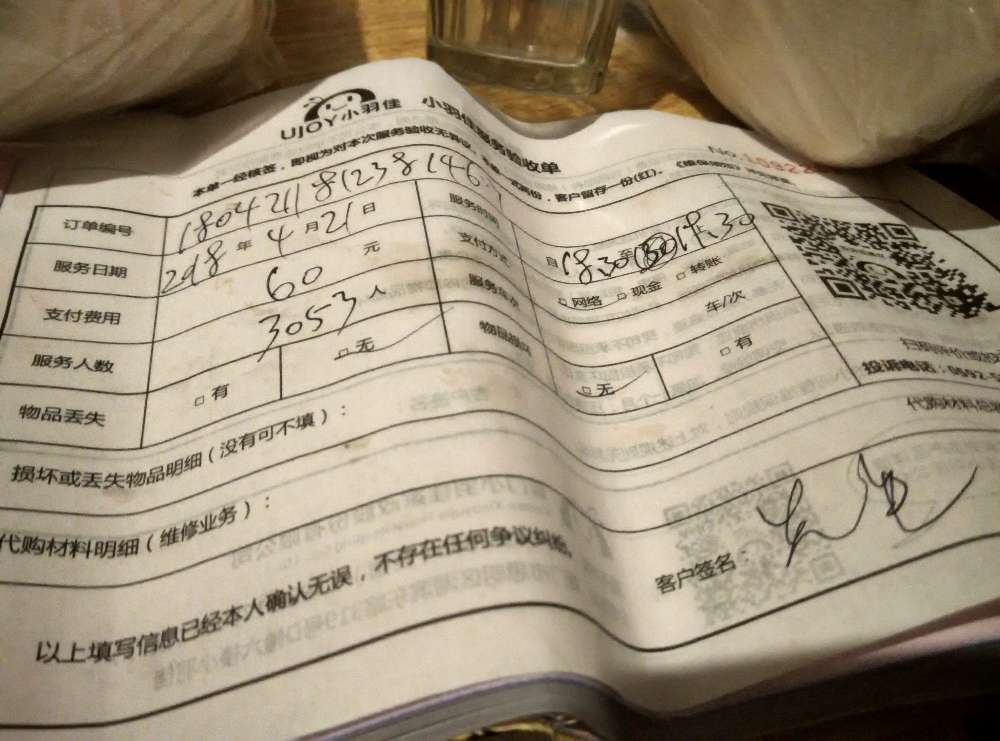 UJOY小羽佳
小羽佳服务验收单
No.
本单一经核签，即视为对本次服务验收无异议，客户留存一份(红)。
订单编号 180421181238146
服务时间 自18:30至19:30
服务日期 2018年4月21日
支付方式 □网络 □现金 □转账
支付费用 60元
车/次
服务人数 3053人
物品丢失 □有 □无
物品损坏 □无 □有
投诉电话：0592-
损坏或丢失物品明细（没有可不填）：
代购材料明细（维修业务）：
以上填写信息已经本人确认无误，不存在任何争议纠纷。
客户签名：